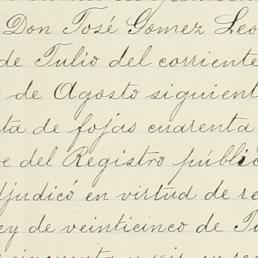 Don José Gomez Leo
de Julio del corriente
de Agosto siguient
ta de fojas cuarenta
e del Registro públic
djudicó en virtud de re
ey de veinticinco de Ju
cincuenta y seis, su se